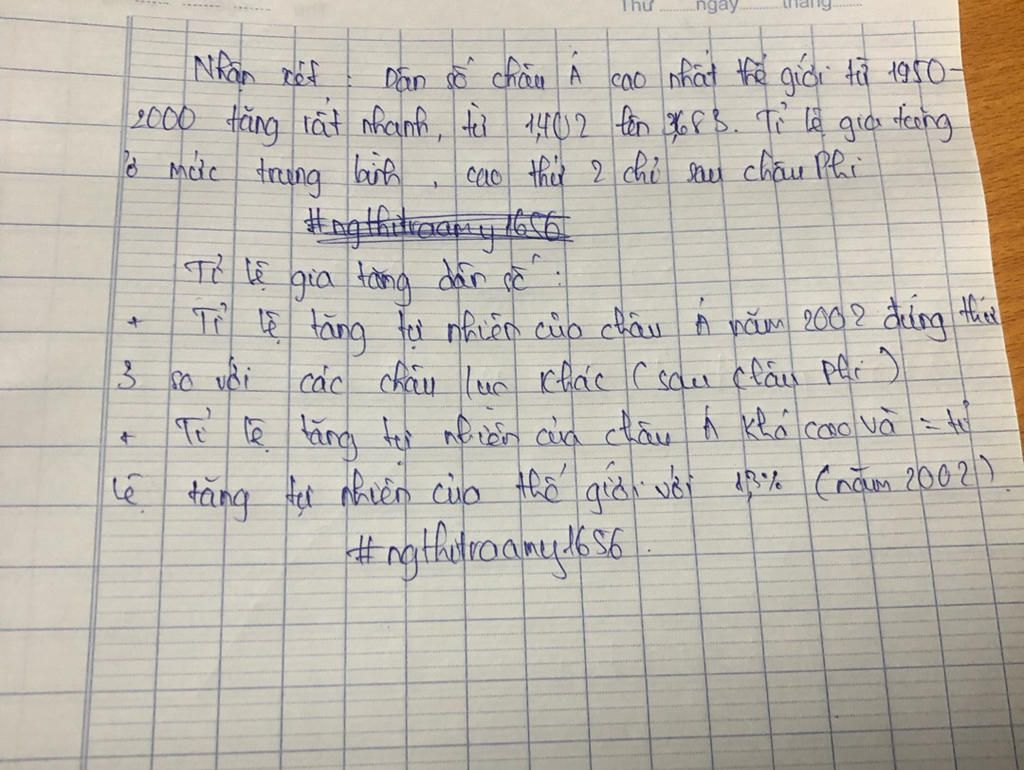 Thứ ngày tháng
Nhận xét : Dân số châu Á cao nhất thế giới từ 1950-
2000 tăng rất nhanh, từ 1,402 lên 3,683. Tỉ lệ gia tăng
ở mức trung bình, cao thứ 2 chỉ sau châu Phi
#ngthitraamy1656
Tỉ lệ gia tăng dân số :
+ Tỉ lệ tăng tự nhiên của châu Á năm 2002 đứng thứ
3 so với các châu lục khác (sau châu Phi)
+ Tỉ lệ tăng tự nhiên của châu Á khá cao và = tỉ
lệ tăng tự nhiên của thế giới với 1,3% (năm 2002)
#ngthitraamy1656.